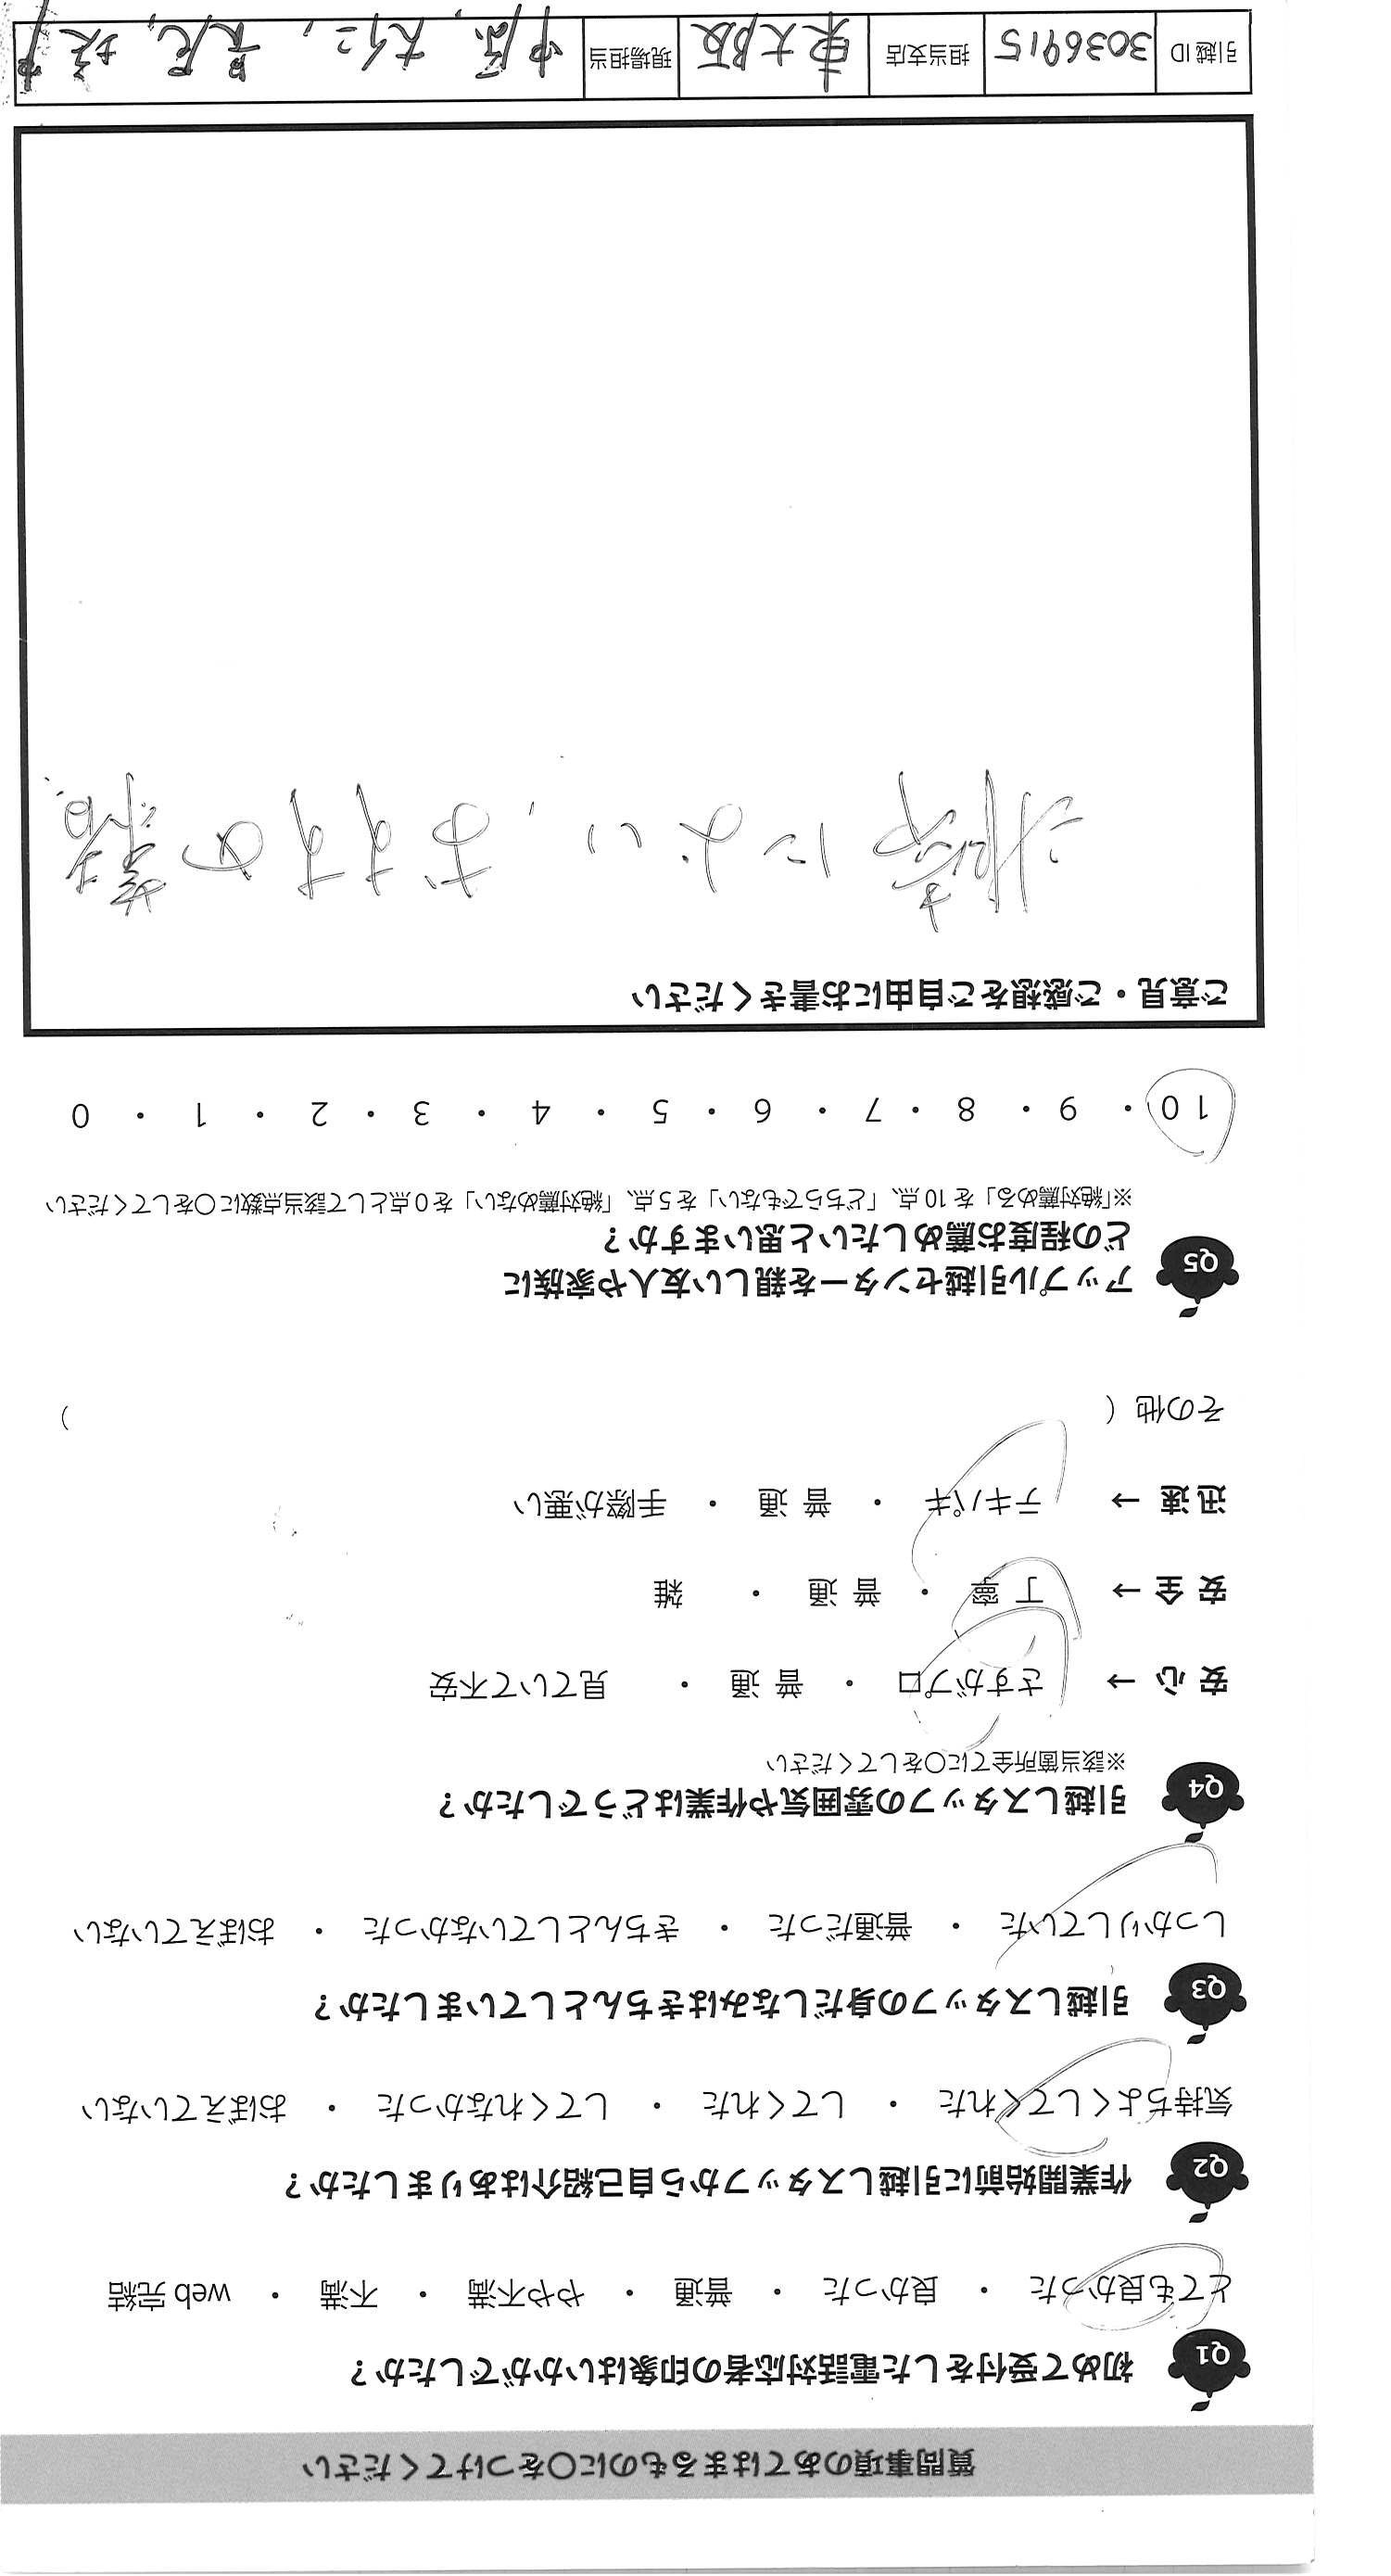 質問事項のあてはまるものに〇をつけてください
Q1 初めて受付をした電話対応者の印象はいかがでしたか？
とても良かった ・ 良かった ・ 普通 ・ やや不満 ・ 不満 ・ web 完結
Q2 作業開始前に引越しスタッフから自己紹介はありましたか？
気持ちよくしてくれた ・ してくれた ・ してくれなかった ・ おぼえていない
Q3 引越しスタッフの身だしなみはきちんとしていましたか？
しっかりしていた ・ 普通だった ・ きちんとしていなかった ・ おぼえていない
Q4 引越しスタッフの雰囲気や作業はどうでしたか？
※該当箇所全てに〇をしてください
安 心 → さすがプロ ・ 普 通 ・ 見ていて不安
安 全 → 丁 寧 ・ 普 通 ・ 雑
迅 速 → テキパキ ・ 普 通 ・ 手際が悪い
その他（ ）
Q5 アップル引越センターを親しい友人や家族に
どの程度お薦めしたいと思いますか？
※「絶対薦める」を 10 点、「どちらでもない」を 5 点、「絶対薦めない」を 0 点として該当点数に〇をしてください
10 ・ 9 ・ 8 ・ 7 ・ 6 ・ 5 ・ 4 ・ 3 ・ 2 ・ 1 ・ 0
ご意見・ご感想をご自由にお書きください
非常によい、おすすめ
引越 ID 3036915 担当支店 東大阪 現場担当 中原、大仁、長尾,